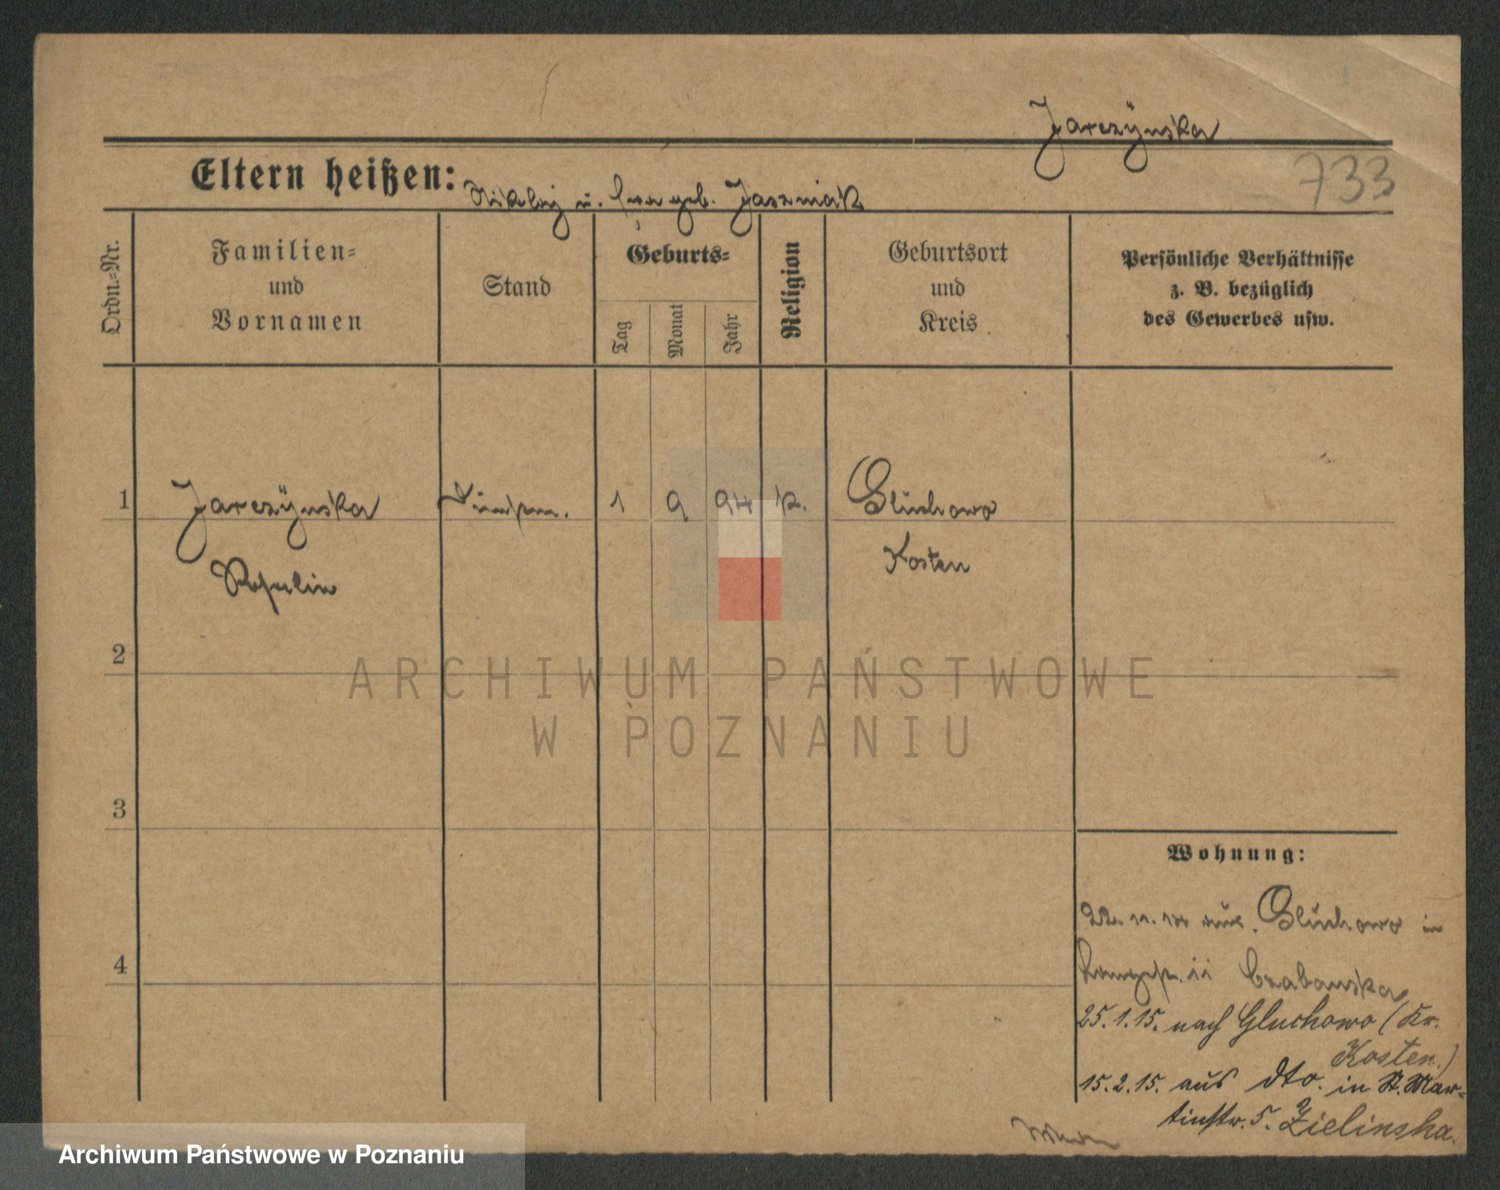 Jarczÿnska
733
Eltern heißen: Nikolaj u. geb. Jaszniak
Ordn.-Nr.
Familien-
und
Vornamen
Stand
Geburts-
Tag
Monat
Jahr
Religion
Geburtsort
und
Kreis
Persönliche Verhältnisse
z. B. bezüglich
des Gewerbes usw.
1 Jarczÿnska 1 9 94 k. Gluchowo
Rosalie Kosten
2
3
4
Wohnung:
22. 11. 14 aus Gluchowo in
11 Czabanska
25. 1. 15. nach Gluchowo (Kr.
Kosten.)
15. 2. 15. aus dto. in St. Mar-
tinstr. 5. Zielinska.
ARCHIWUM PAŃSTWOWE
W POZNANIU
Archiwum Państwowe w Poznaniu